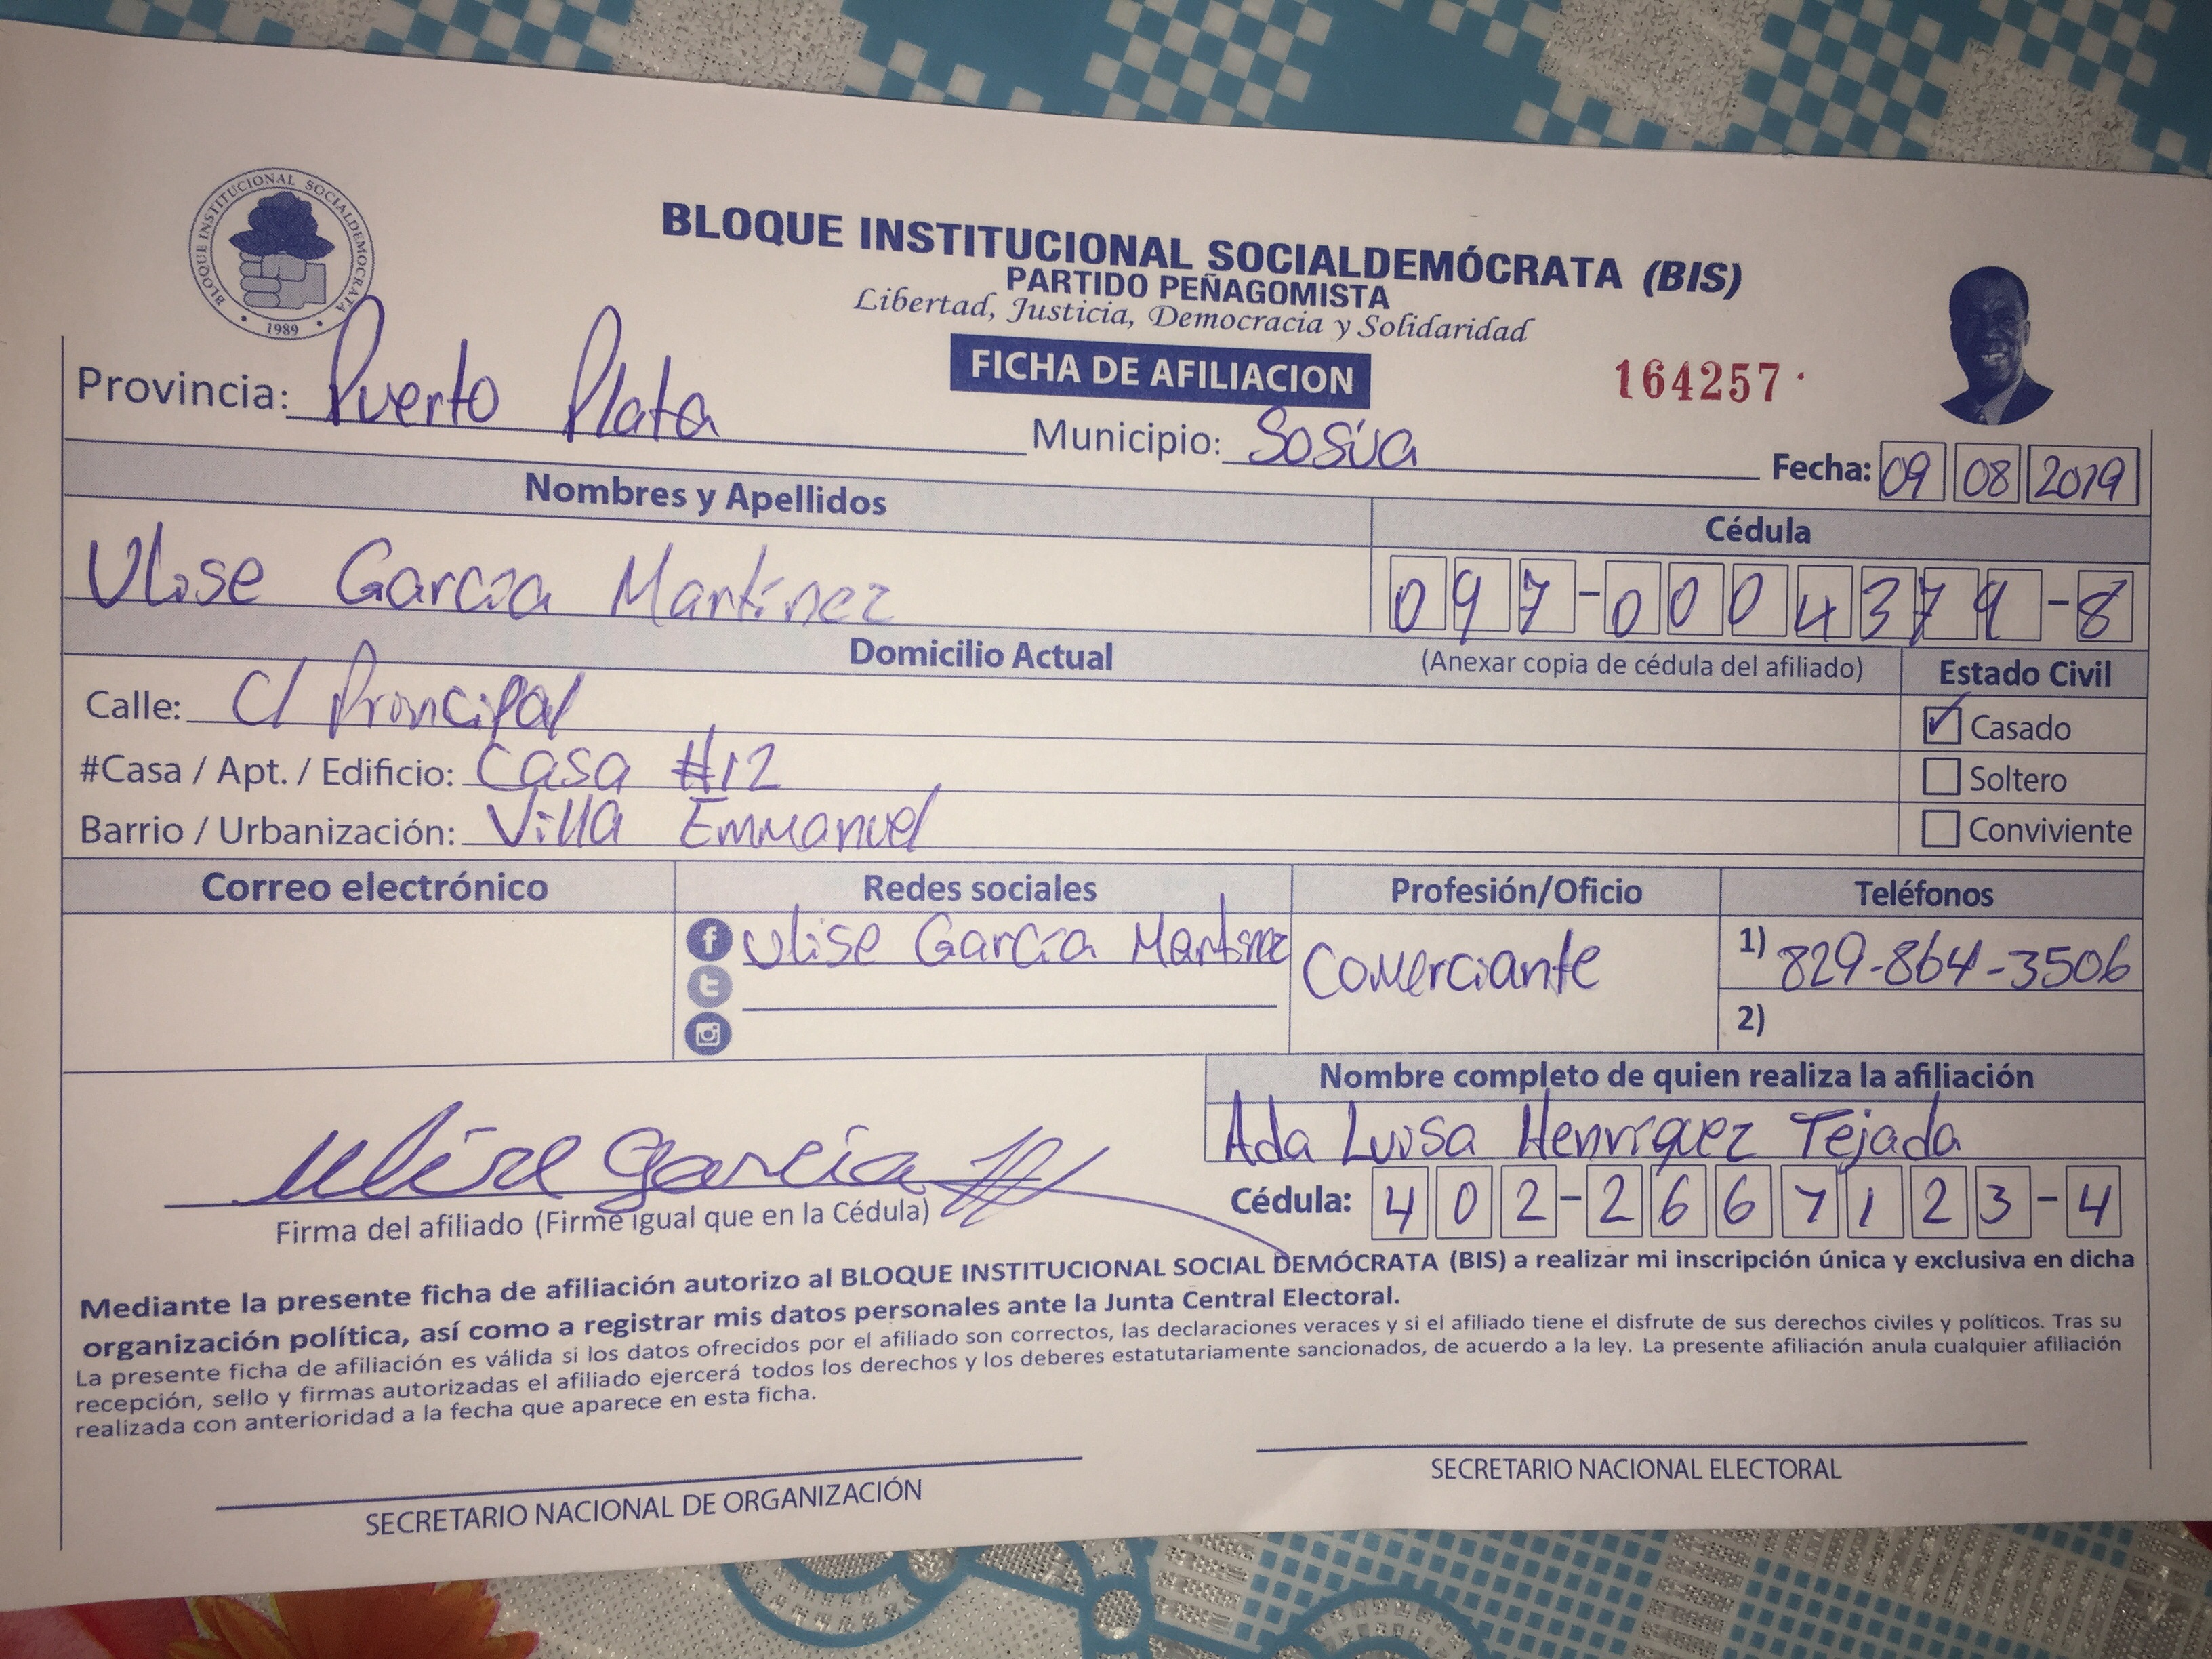 BLOQUE INSTITUCIONAL SOCIALDEMOCRATA
1989
BLOQUE INSTITUCIONAL SOCIALDEMÓCRATA (BIS)
PARTIDO PEÑAGOMISTA
Libertad, Justicia, Democracia y Solidaridad
FICHA DE AFILIACION
164257
Provincia: Puerto Plata Municipio: Sosúa Fecha: 09 08 2019
Nombres y Apellidos Cédula
Ulise Garcia Martinez 097-0004379-8
Domicilio Actual (Anexar copia de cédula del afiliado) Estado Civil
Calle: C/ Principal Casado
#Casa / Apt. / Edificio: Casa #12 Soltero
Barrio / Urbanización: Villa Emmanuel Conviviente
Correo electrónico Redes sociales Profesión/Oficio Teléfonos
Ulise Garcia Martinez Comerciante 1) 829-864-3506
2)
Nombre completo de quien realiza la afiliación
Ada Luisa Henriquez Tejada
Ulise Garcia
Firma del afiliado (Firme igual que en la Cédula) Cédula: 402-2667123-4
Mediante la presente ficha de afiliación autorizo al BLOQUE INSTITUCIONAL SOCIAL DEMÓCRATA (BIS) a realizar mi inscripción única y exclusiva en dicha
organización política, así como a registrar mis datos personales ante la Junta Central Electoral.
La presente ficha de afiliación es válida si los datos ofrecidos por el afiliado son correctos, las declaraciones veraces y si el afiliado tiene el disfrute de sus derechos civiles y políticos. Tras su
recepción, sello y firmas autorizadas el afiliado ejercerá todos los derechos y los deberes estatutariamente sancionados, de acuerdo a la ley. La presente afiliación anula cualquier afiliación
realizada con anterioridad a la fecha que aparece en esta ficha.
SECRETARIO NACIONAL DE ORGANIZACIÓN SECRETARIO NACIONAL ELECTORAL